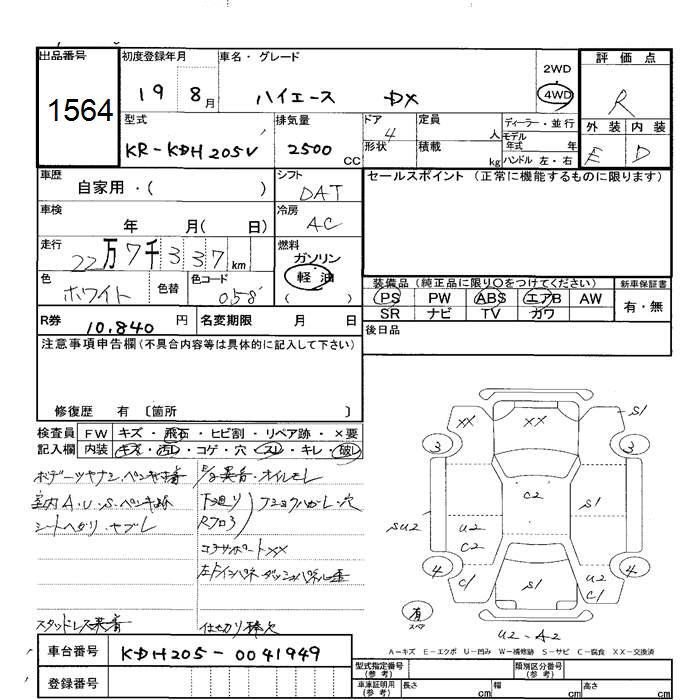 出品番号
1564
初度登録年月
19 8月
車名・グレード
ハイエース DX
2WD
4WD
評価点
R
外装 内装
E D
型式
KR-KDH205V
排気量
2500 CC
ドア
4
形状
定員
人
積載
kg
ディーラー・並行
モデル
年式 年
ハンドル 左・右
車歴
自家用・( )
シフト
DAT
セールスポイント (正常に機能するものに限ります)
車検
年 月( 日)
冷房
AC
走行
22万7千337km
燃料
ガソリン
軽油
( )
色
ホワイト
色替
色コード
058
装備品 (純正品に限り○をつけてください)
PS PW ABS エアB AW
SR ナビ TV ガワ
新車保証書
有・無
R券
10,840円
名変期限 月 日
後日品
注意事項申告欄(不具合内容等は具体的に記入して下さい)
修復歴 有 〔箇所 〕
検査員
記入欄
FW キズ・飛石・ヒビ割・リペア跡・×要
内装 キズ・汚レ・コゲ・穴・スレ・キレ・破レ
室内A.U.S.
シートヘタリ・ヤブレ
E/g異音・オイルモレ
下廻り
コアサポートXX
スタッドレス
仕切り棒欠
XX
XX
S1
3
3
C2
S1
SU2
U2
C2
4
4
C1
S1
U2
C1
有
スペア
U2-A2
A-キズ E-エクボ U-凹み W-補修跡 S-サビ C-腐食 XX-交換済
車台番号
KDH205-0041949
登録番号
型式指定番号
(参考)
類別区分番号
(参考)
車庫証明用
(参考)
長さ cm
幅 cm
高さ cm